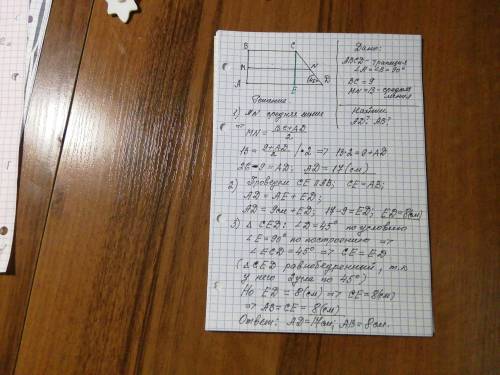 B C
M N
A E D
45°
Дано:
ABCD - трапеция
∠A = ∠B = 90°
BC = 9
MN = 13 - средняя
линия
Найти:
AD? AB?
Решение
1) MN средняя линия
=> MN = BC + AD / 2
13 = 9 + AD / 2 | • 2 => 13 • 2 = 9 + AD
26 - 9 = AD; AD = 17 (см)
2) Проведем CE || AB; CE = AB;
AD = AE + ED;
AD = 9см + ED; 17 - 9 = ED; ED = 8(см)
3) △ CED: ∠D = 45° по условию
∠E = 90° по построению =>
∠ECD = 45° => CE = ED
(△CED равнобедренный, т.к
у него 2 угла по 45°)
Но ED = 8(см) => CE = 8(см)
=> AB = CE = 8(см)
Ответ: AD = 17см; AB = 8см.